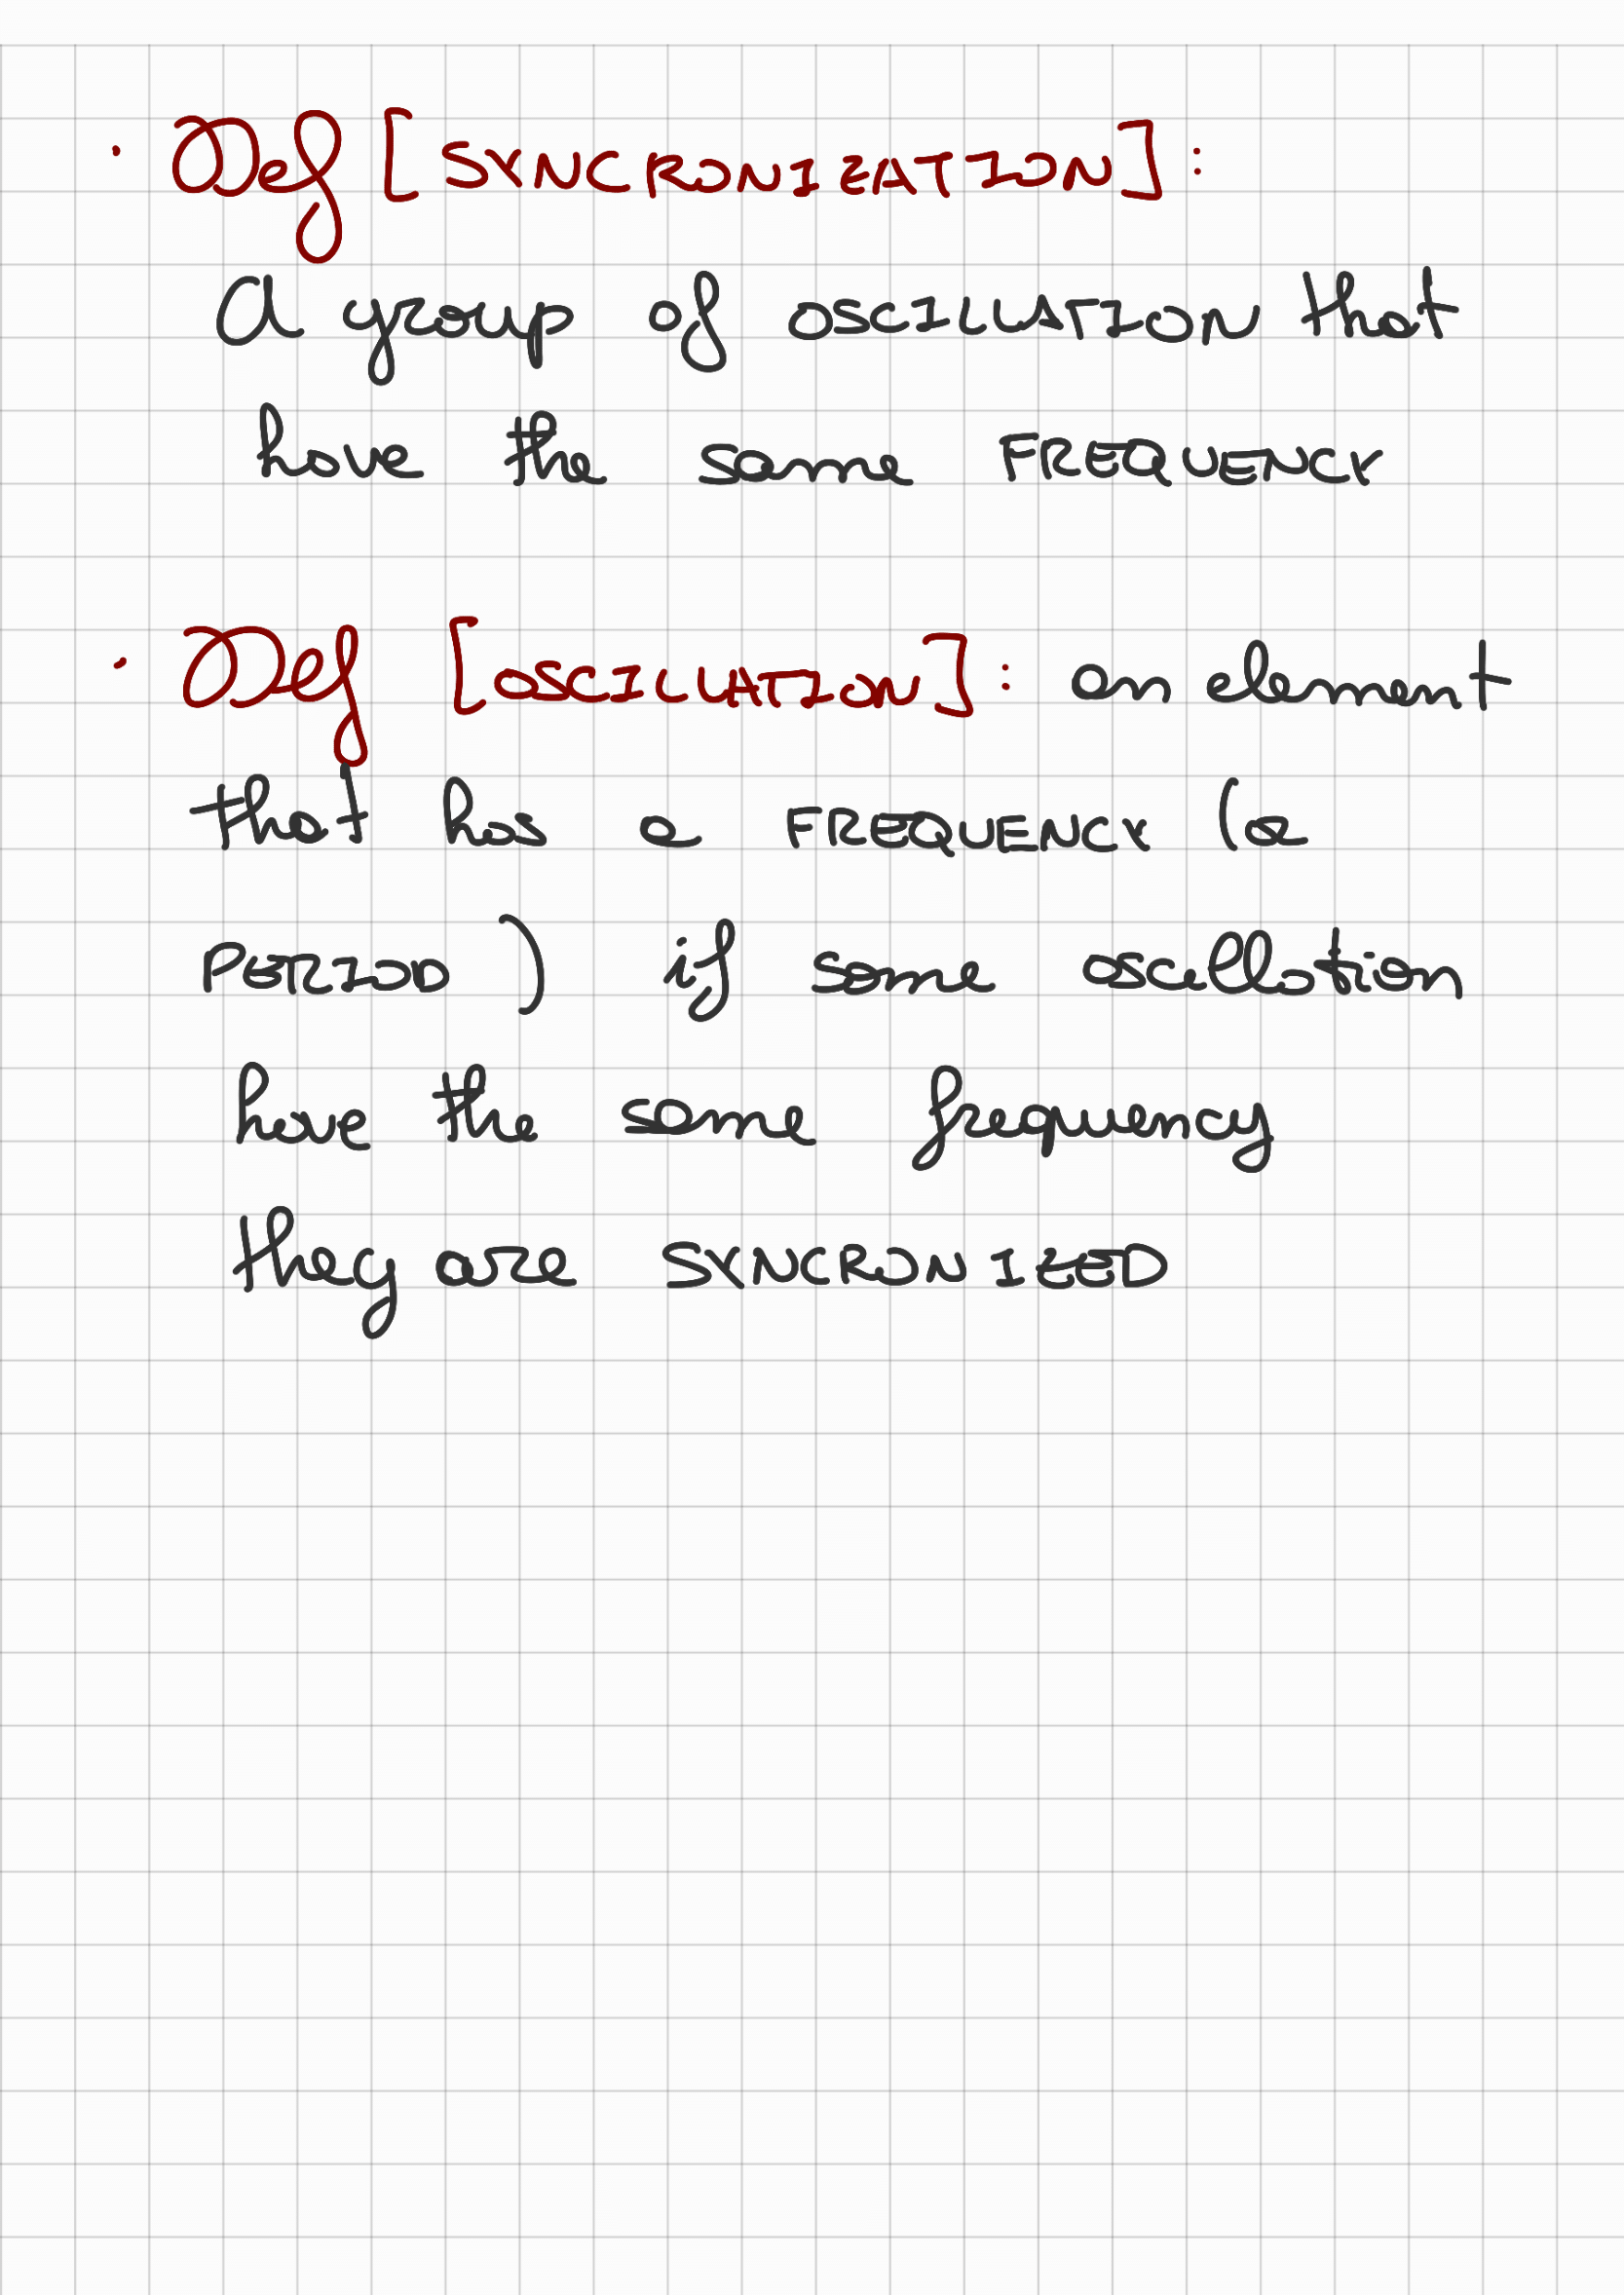 · Def [SYNCRONIZATION]:
A group of OSCILLATION that
have the same FREQUENCY
· Def [OSCILLATION]: an element
that has a FREQUENCY (a
PERIOD) if some oscillation
have the same frequency
they are SYNCRONIZED